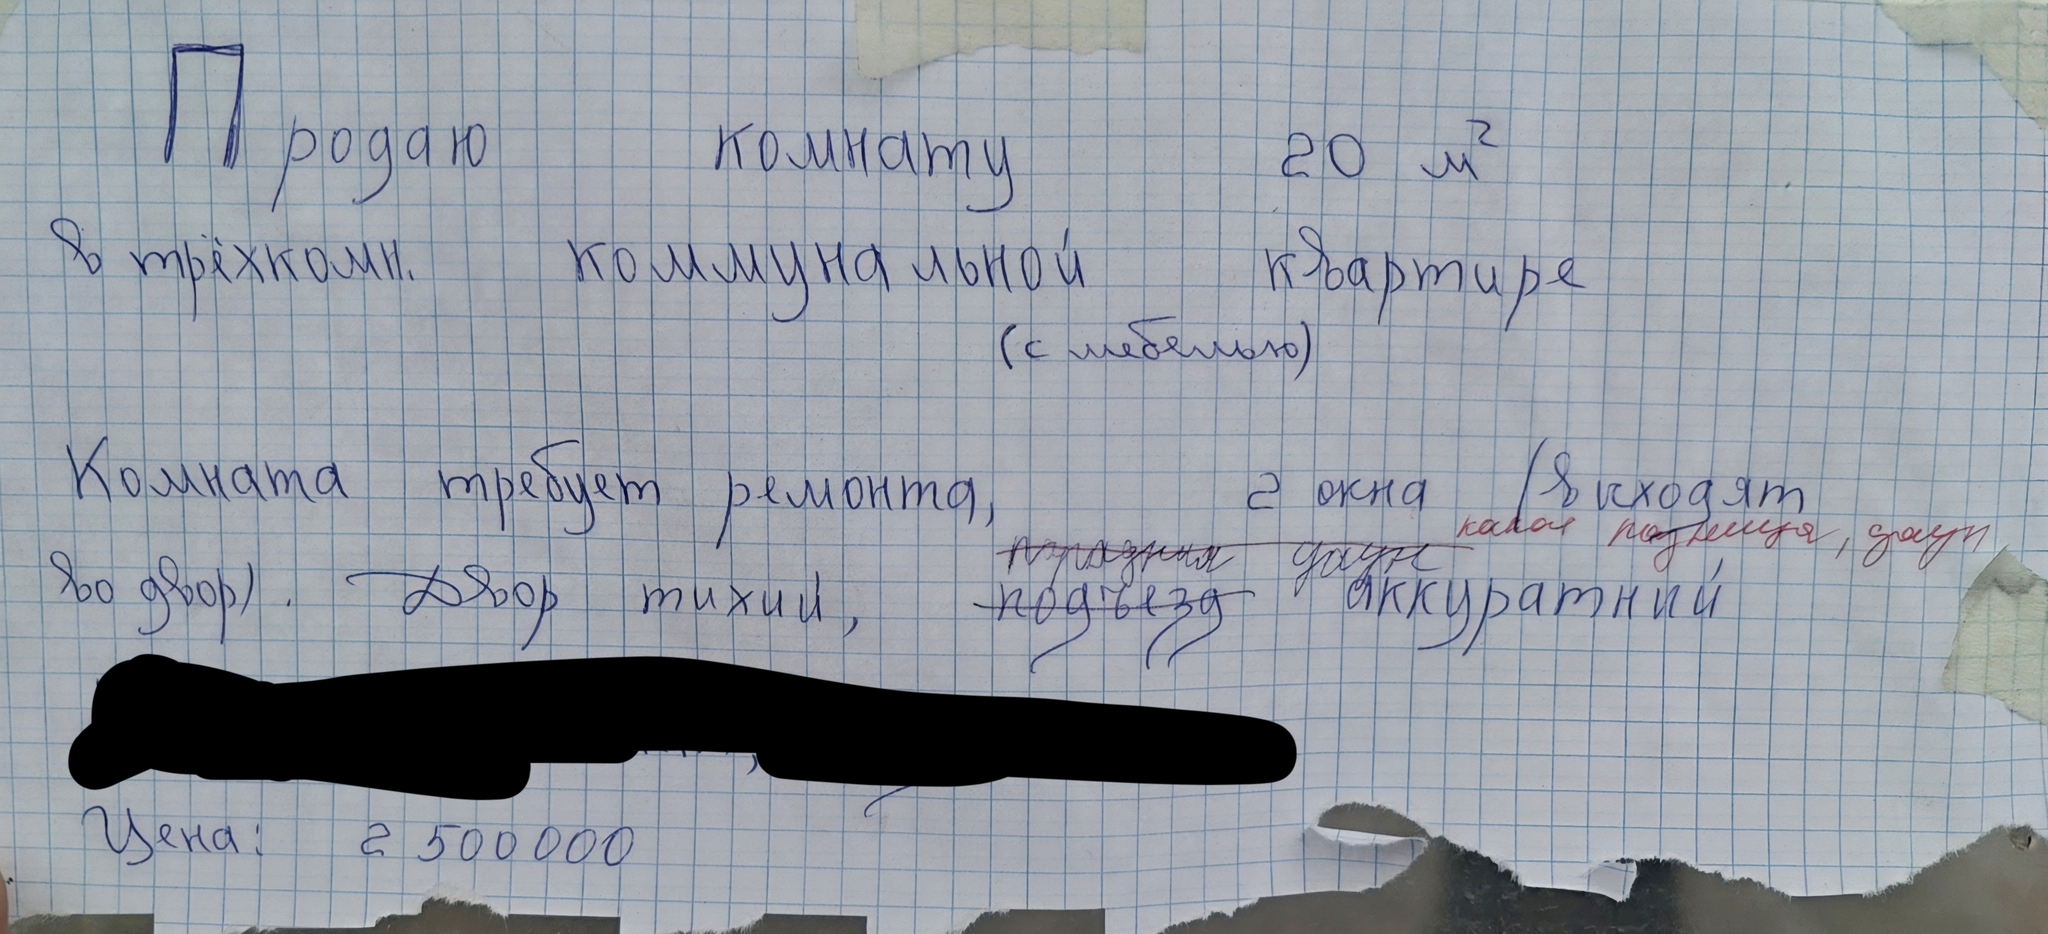 Продаю комнату 20 м²
в трёхкомн. коммунальной квартире
(с мебелью)
Комната требует ремонта, 2 окна (выходят
какая разница, даун
даун
во двор). Двор тихий, подъезд аккуратный
Цена: 2 500 000